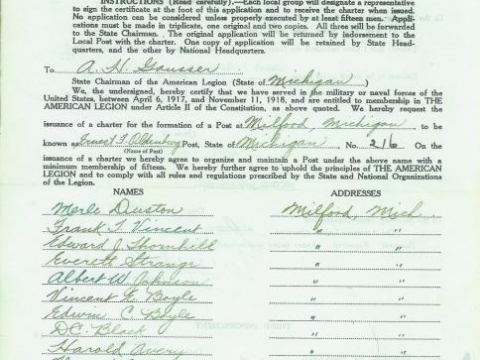 INSTRUCTIONS (Read carefully).—Each local group will designate a representative
to sign the certificate at the foot of this application and to receive the charter when issued.
No application can be considered unless properly executed at least fifteen men. Appli-
cations must be made in triplicate, one original and two copies. All three will be forwarded
to the State Chairman. The original application will be returned by indorsement to the
Local Post with the charter. One copy of application will be retained by State Head-
quarters, and the other by National Headquarters.
To A. H. Gansser
State Chairman of the American Legion (State of Michigan)
We, the undersigned, hereby certify that we have served in the military or naval forces of the
United States, between April 6, 1917, and November 11, 1918, and are entitled to membership in THE
AMERICAN LEGION under Article II of the Constitution, as above quoted. We hereby request the
issuance of a charter for the formation of a Post at Milford, Michigan to be
known as Ernest F. Oldenburg Post, State of Michigan No. 216 On the
(Name of Post)
issuance of a charter we hereby agree to organize and maintain a Post under the above name with a
minimum membership of fifteen. We hereby further agree to uphold the principles of THE AMERICAN
LEGION and to comply with all rules and regulations prescribed by the State and National Organizations
of the Legion.
NAMES ADDRESSES
Merle Duston Milford, Mich.
Frank T. Vincent " "
Edward J. Thornhill " "
Everett Strange " "
Albert W. Johnson " "
Vincent F. Boyle " "
Edwin C. Boyle " "
D.C. Black " "
Harold Avery " "